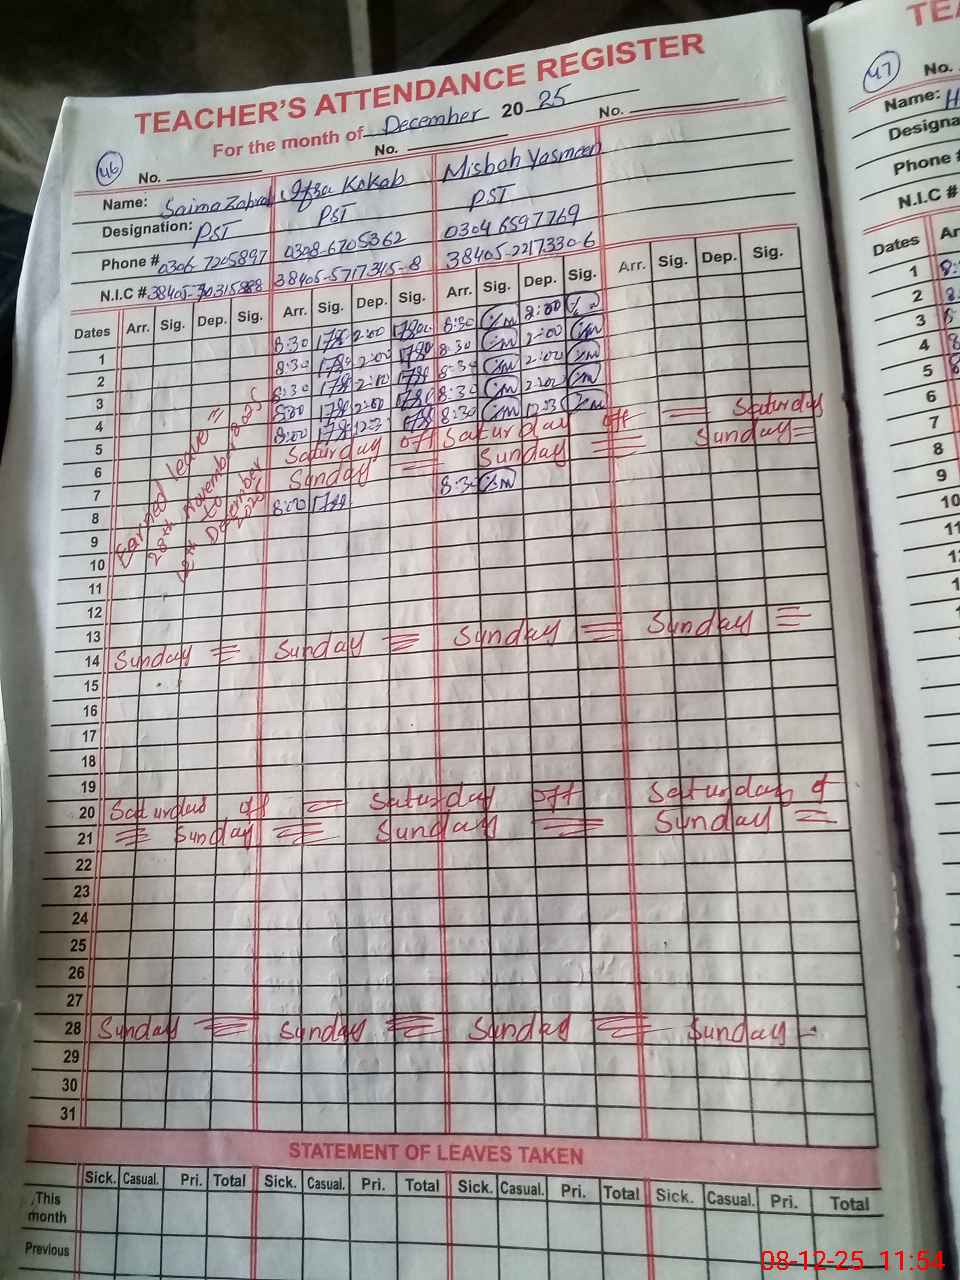 TEACHER'S ATTENDANCE REGISTER
For the month of December 20 25
46 No. No. No.
Name: Saima Zahra Iqra Kokab Misbah Yasmeen
Designation: PST PST PST
Phone # 0306 7205897 0308-6705362 0304 6597769
N.I.C # 38405-5717345-8 38405-2217330-6
Dates Arr. Sig. Dep. Sig. Arr. Sig. Dep. Sig. Arr. Sig. Dep. Sig. Arr. Sig. Dep. Sig.
1 8:30 2:00 8:30 2:00
2 8:30 2:00 8:30 2:00
3 8:30 2:00 8:30 2:00
4 8:00 2:00 8:30 2:00
5 8:00 12:3 8:30 12:3
6 Saturday off Saturday off Saturday
7 Sunday Sunday Sunday
8 8:00 8:30
Earned leave
28th November 2025
to
December
2025
9
10
11
12
13
14 Sunday Sunday Sunday Sunday
15
16
17
18
19
20 Saturday off Saturday off Saturday of
21 Sunday Sunday Sunday
22
23
24
25
26
27
28 Sunday Sunday Sunday Sunday
29
30
31
STATEMENT OF LEAVES TAKEN
Sick. Casual. Pri. Total Sick. Casual. Pri. Total Sick. Casual. Pri. Total Sick. Casual. Pri. Total
This month
Previous
47 No.
Name: H
Designa
Phone #
N.I.C #
Dates Ar
1 8:
2 8:
3 8:
4 8
5 8
6
7
8
9
10
11
08-12-25 11:54